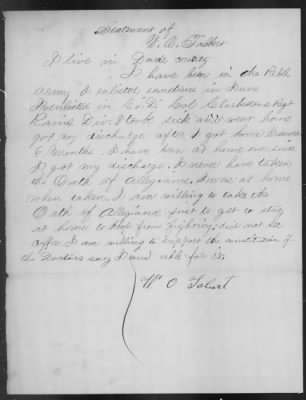 Statement of
W. C. Tolbert
I live in Dade county
I have been in the Rebel
army I enlisted sometime in June
I enlisted in Co. D. Col Clarkstons Regt
Rains Div. I took sick and went home
got my discharge after I got home
6 months. I have been at home ever since
I got my discharge. I never have taken
the Oath of Allegiance. I was at home
when taken. I am willing to take the
Oath of Allegiance just to get to stay
at home to keep from fighting, did not see
I am willing to support the constitution if
the Doctors say I am able for it.
Wm O Tolbert